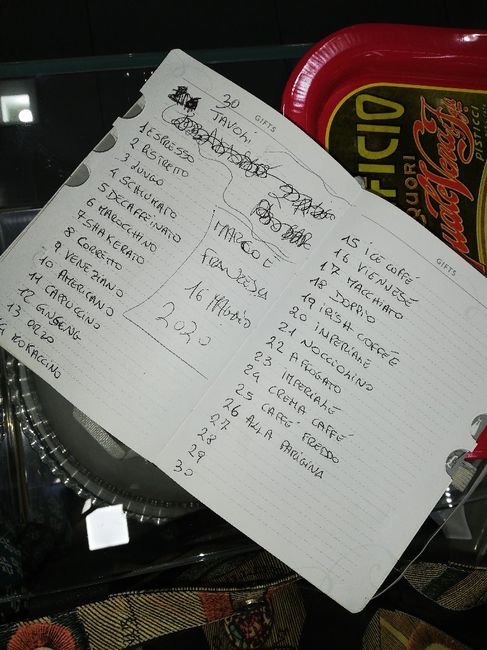 30
TAVOLI
GIFTS
1 ESPRESSO
2 RISTRETTO
3 LUNGO
4 SCHIUMATO
5 DECAFFEINATO
6 MAROCCHINO
7 SHAKERATO
8 CORRETTO
9 VENEZIANO
10 AMERICANO
11 CAPPUCCINO
12 GINSENG
13 ORZO
14 MOKACCINO
MARCO E
FRANCESCA
16 MAGGIO
2020
GIFTS
15 ICE COFFÉ
16 VIENNESE
17 MACCHIATO
18 DOPPIO
19 IRISH COFFÉÈ
20 IMPERIALE
21 NOCCIOLINO
22 AFFOGATO
23 IMPERIALE
24 CREMA CAFFÉ
25 CAFFÉ FREDDO
26 ALLA PARIGINA
27
28
29
30
FICIO